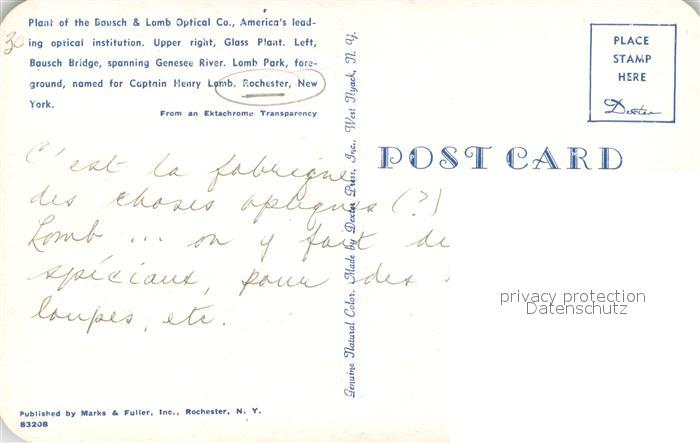 Plant of the Bausch & Lomb Optical Co., America's lead-
ing optical institution. Upper right, Glass Plant. Left,
Bausch Bridge, spanning Genesee River. Lomb Park, fore-
ground, named for Captain Henry Lomb. Rochester, New
York.
From an Ektachrome Transparency
30
C'est la fabrique
des choses optiques (?)
Lomb ... on y fait de
spéciaux, pour des
loupes, etc.
Published by Marks & Fuller, Inc., Rochester, N. Y.
83208
Genuine Natural Color. Made by Dexter Press, Inc., West Nyack, N. Y.
POST CARD
PLACE
STAMP
HERE
Dexter
privacy protection
Datenschutz